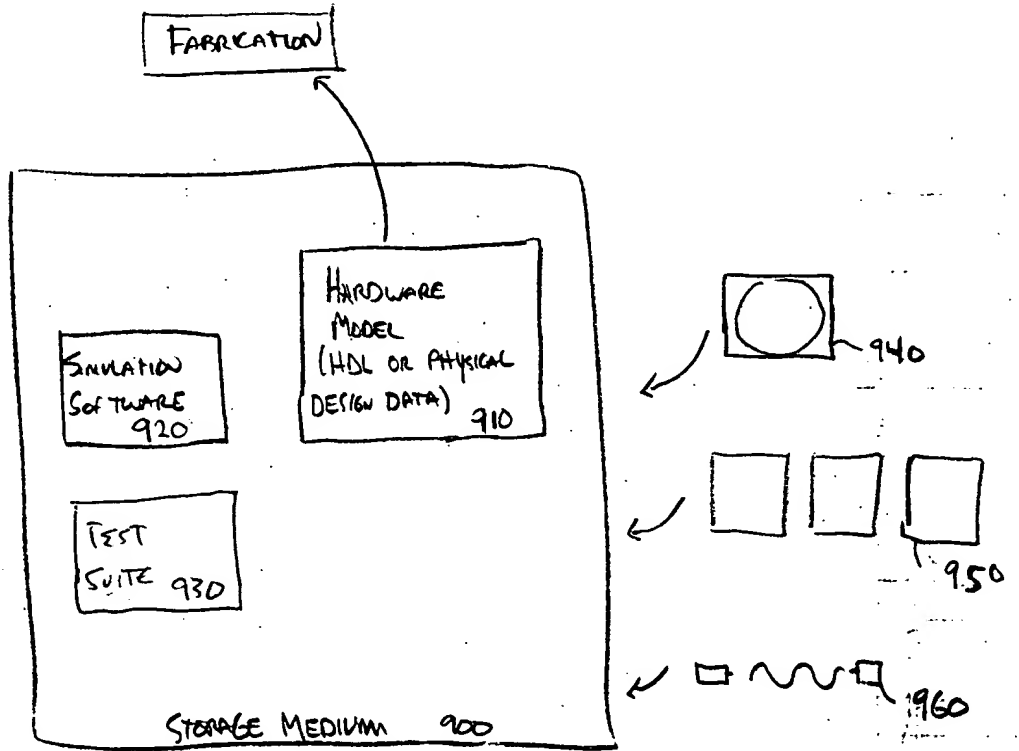 FABRICATION
HARDWARE
MODEL
(HDL OR PHYSICAL
DESIGN DATA)
910
SIMULATION
SOFTWARE
920
TEST
SUITE 930
940
950
960
STORAGE MEDIUM 900